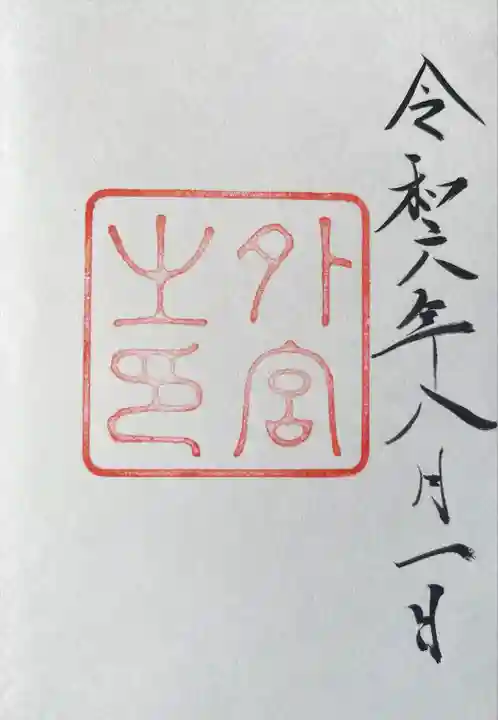 令和六年八月一日
外宮
之印